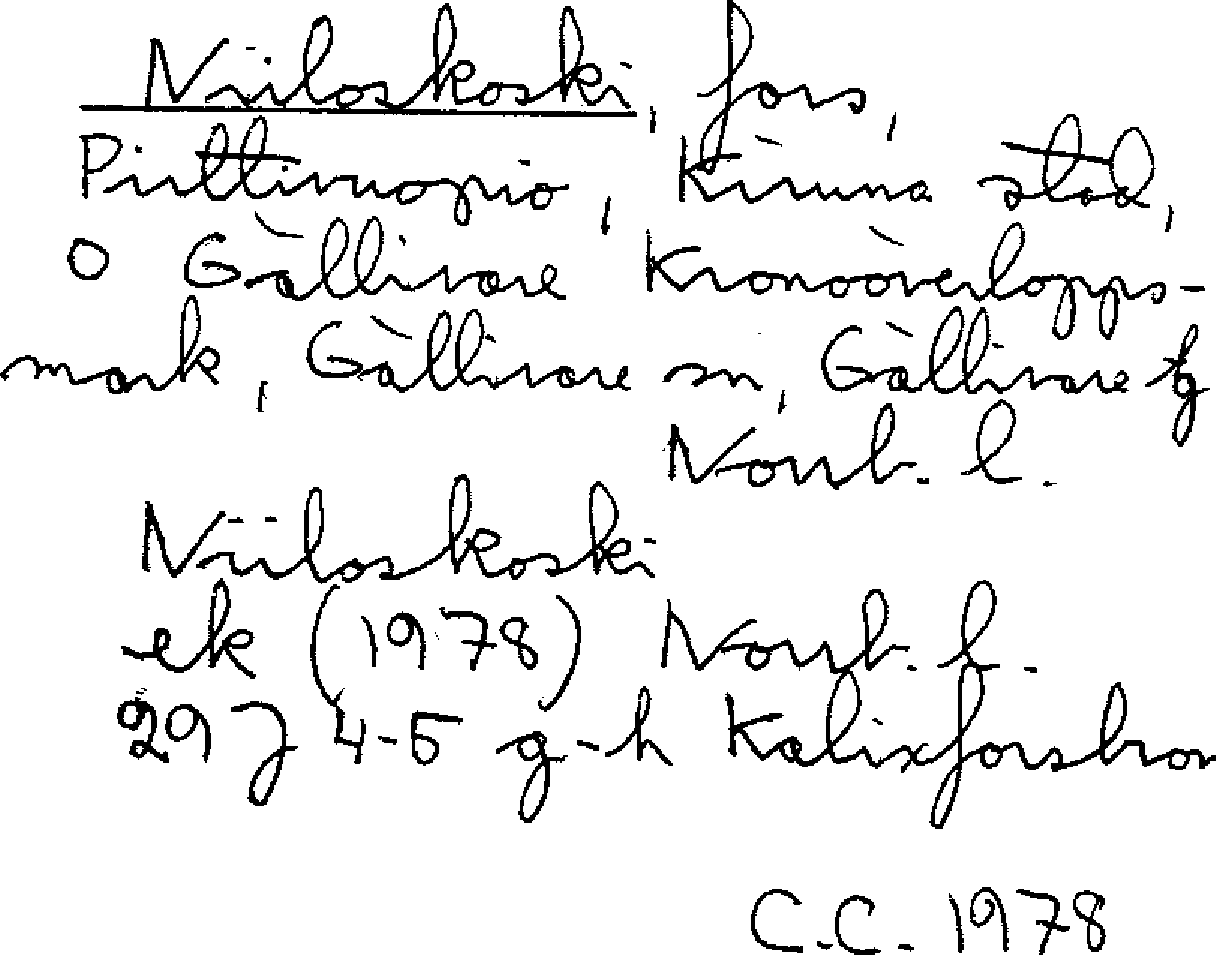 Niiloskoski, fors,
Pirttivuopio, Kiruna stad,
o Gällivare Kronoöverlopps-
mark, Gällivare sn, Gällivare tg
Norrb. l.
Niiloskoski
ek (1978) Norrb. l.
29 J 4-5 g-h Kalixforsbron
C.C. 1978